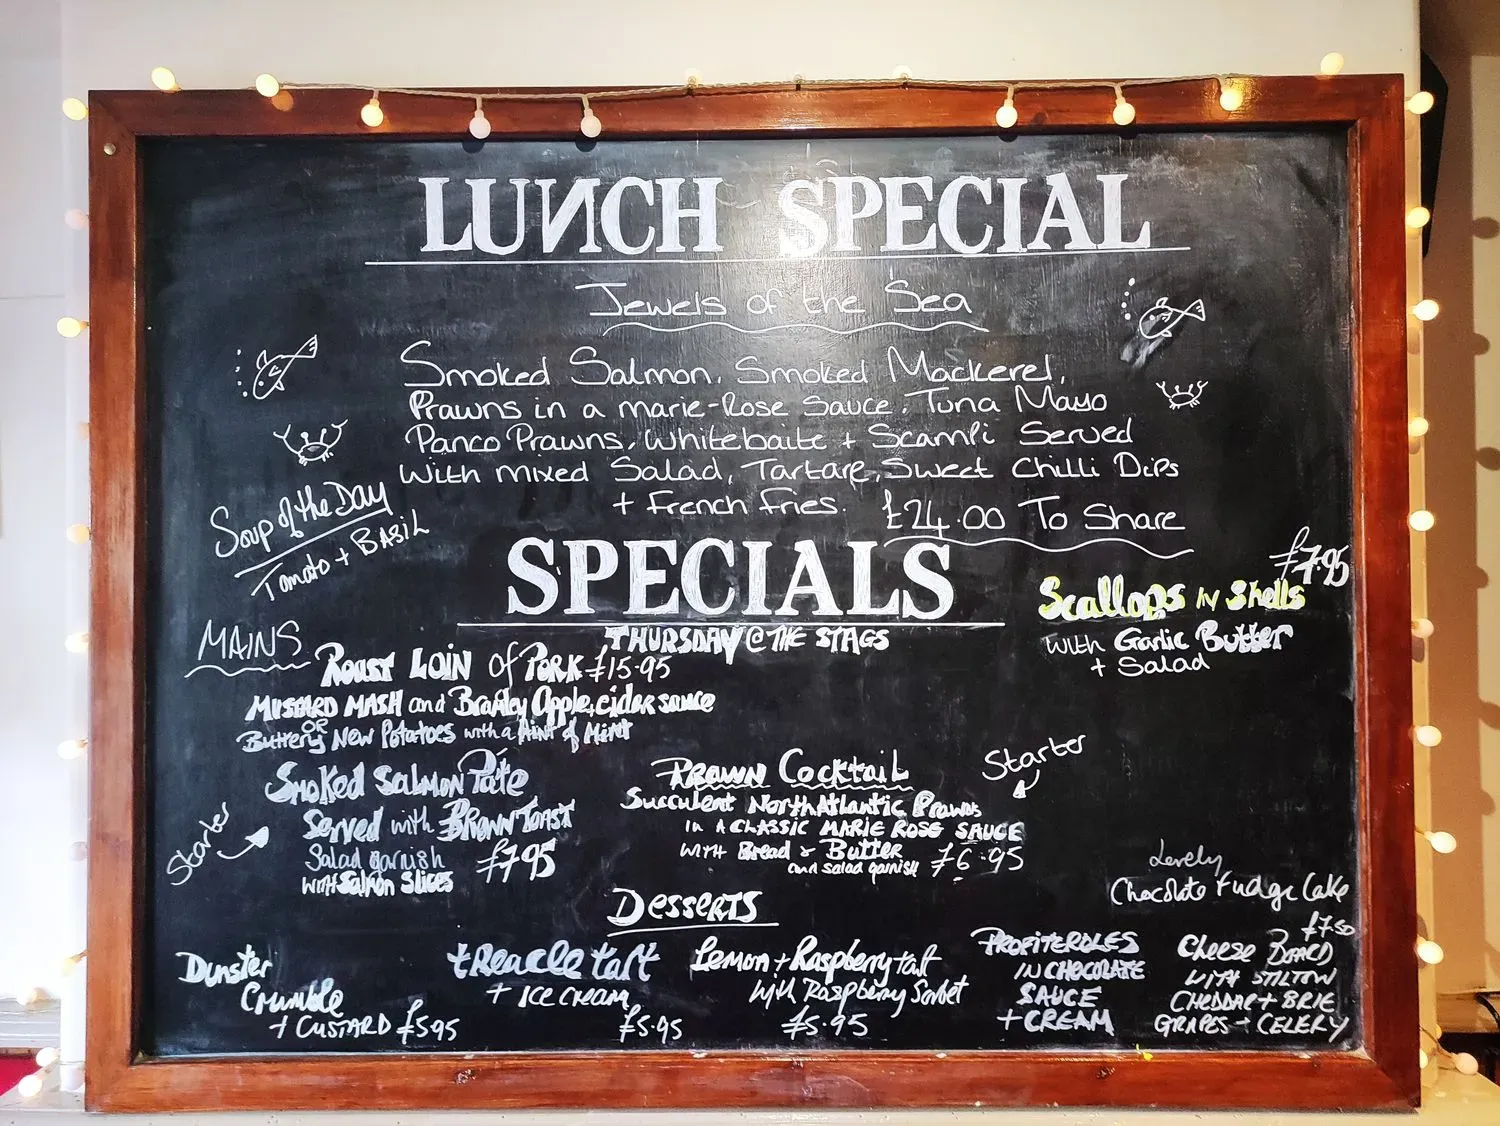 LUNCH SPECIAL
Jewels of the Sea
Smoked Salmon, Smoked Mackerel,
Prawns in a marie-Rose Sauce, Tuna Mayo
Panco Prawns, Whitebaite + Scampi Served
With mixed Salad, Tartare, Sweet Chilli Dips
+ French Fries. £24.00 To Share
Soup of the DAY
Tomato + BASIL
SPECIALS
THURSDAY @ THE STAGS
£7.95
Scallops in Shells
with Garlic Butter
+ Salad
MAINS
ROAST LOIN of PORK £15.95
MUSTARD MASH and Bramley Apple, cider sauce
or
Buttery New Potatoes with a HINT of MINT
Starter
Smoked Salmon Pate
Served with BROWN TOAST
Salad garnish
with Salmon Slices £7.95
Starter
PRAWN Cocktail
Succulent North Atlantic Prawns
IN A CLASSIC MARIE ROSE SAUCE
WITH Bread & Butter
and salad garnish £6.95
Lovely
Chocolate Fudge Cake
£7.50
Desserts
Dunster
Crumble
+ CUSTARD £5.95
treacle tart
+ ICE CREAM
£5.95
Lemon + Raspberry tart
With Raspberry Sorbet
£5.95
PROFITEROLES
IN CHOCOLATE
SAUCE
+ CREAM
Cheese BOARD
WITH STILTON
CHEDDAR + BRIE
GRAPES + CELERY